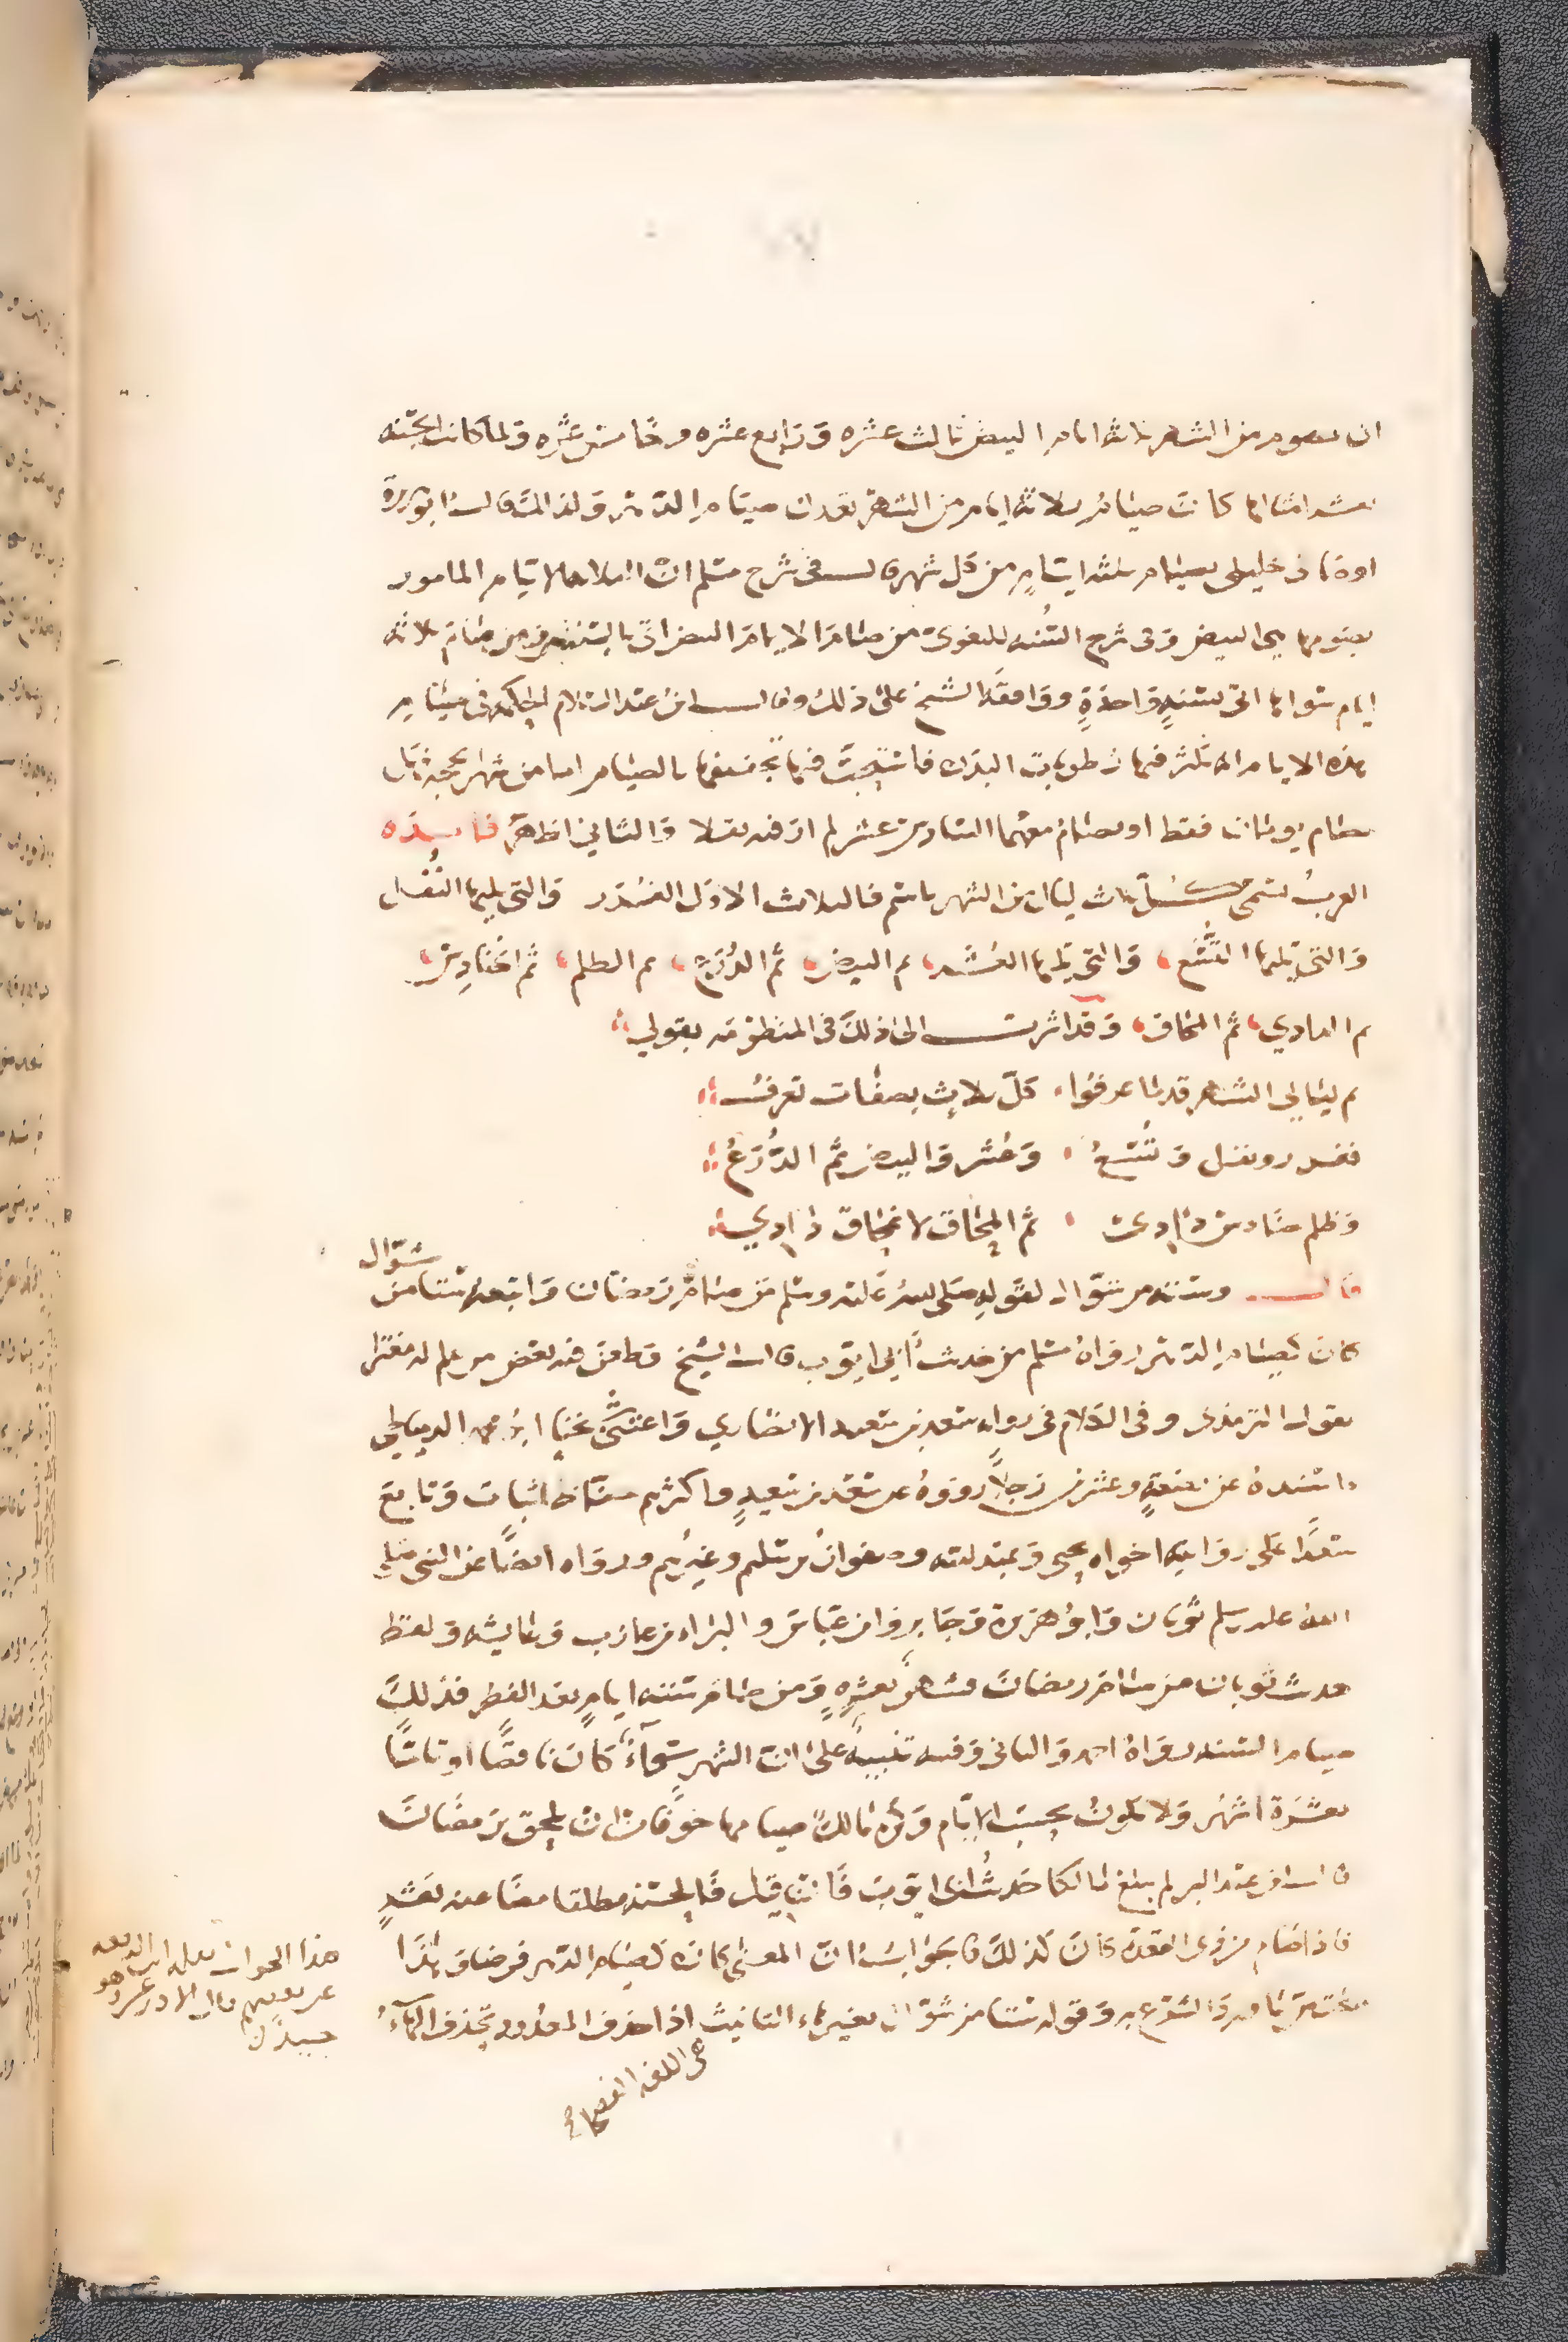 ان يصوم من الشهر ثلاثة ايام البيض ثالث عشره ورابع عشره وخامس عشره ولما كانت الحسنة
بعشر امثالها كانت صيام ثلاثة ايام من الشهر بعدل صيام الدهر ولذلك قال ابو هريرة
اوصاني خليلي بصيام ثلثه ايام من كل شهر قال في شرح مسلم ان الايام المامور
بصومها هي البيض وفي شرح السنه للبغوي من صام الايام البيض اتى بالسنتين ومن صام ثلاثه
ايام سواها اتى بسنة واحدة ووافقه الشيخ على ذلك وقال ابن عبد السلام الحكمة في صيام
هذه الايام انه تكثر فيها رطوبات البدن فاستحب فيها تجفيفها بالصيام اما من شهر الحجة هل
يصام يومان فقط او يصام معهما السادس عشر لم ار فيه نقلا والثاني اظهر فايده
العرب تسمى كل ثلاث ليال من الشهر باسم فالثلاث الاول الغرر والتي يليها النفل
والتي يليها التسع والتي يليها العشر ثم البيض ثم الدرع ثم الظلم ثم الحنادس
ثم الدادي ثم المحاق وقد اشرت الى ذلك في المنظومه بقولي
ثم ليالي الشهر قدما عرفوا كل ثلاث بصفات تعرف
فغرر ونفل وتسع وعشر والبيض ثم الدرع
وظلم حنادس دادي ثم المحاق لا نمحاق دادي
قال وستة من شوال لقوله صلى الله عليه وسلم من صام رمضان واتبعه ستا من شوال
كان كصيام الدهر رواه مسلم من حديث أبي ايوب قال الشيخ وطعن فيه بعض من لا علم له مغترا
بقول الترمذي وفي الكلام في رواية سعد بن سعيد الانصاري واعتنى شيخنا ابو محمد الدمياطي
واسنده عن بضعة وعشرين رجلا رووه عن سعد بن سعيد واكثرهم حفاظ اثبات وتابع
سعدا على روايته اخواه يحيى وعبد ربه وصفوان بن سليم وغيرهم ورواه ايضا عن النبي صلى
الله عليه وسلم ثوبان وابو هريرة وجابر وابن عباس والبراء بن عازب وعايشه ولفظ
حديث ثوبان من صام رمضان فشهر بعشره ومن صام ستة ايام بعد الفطر فذلك
صيام السنة رواه احمد والنسائي وفيه تنبيه على ان الشهر سواء كان ناقصا او تاما
بعشرة اشهر ولا يكون بحسب الايام وكره مالك صيامها خوفا من ان يلحق برمضان
قال ابن عبد البر لم يبلغ مالكا حديث ابي ايوب فان قيل فالحسنة مطلقا مضاعفة بعشر
فاذا صام من ذي القعدة كان كذلك فالجواب ان المعنى كان كصيام الدهر فرضا وهذا
مختص بما ورد الشرع به وقوله ستا من شوال بغير هاء التانيث اذا حذف المعدود تحذف الهاء
على اللغه الفصحى
هذا الجواب نقله ابن الرفعه
عن بعضهم قال الاذرعي وهو
جيد